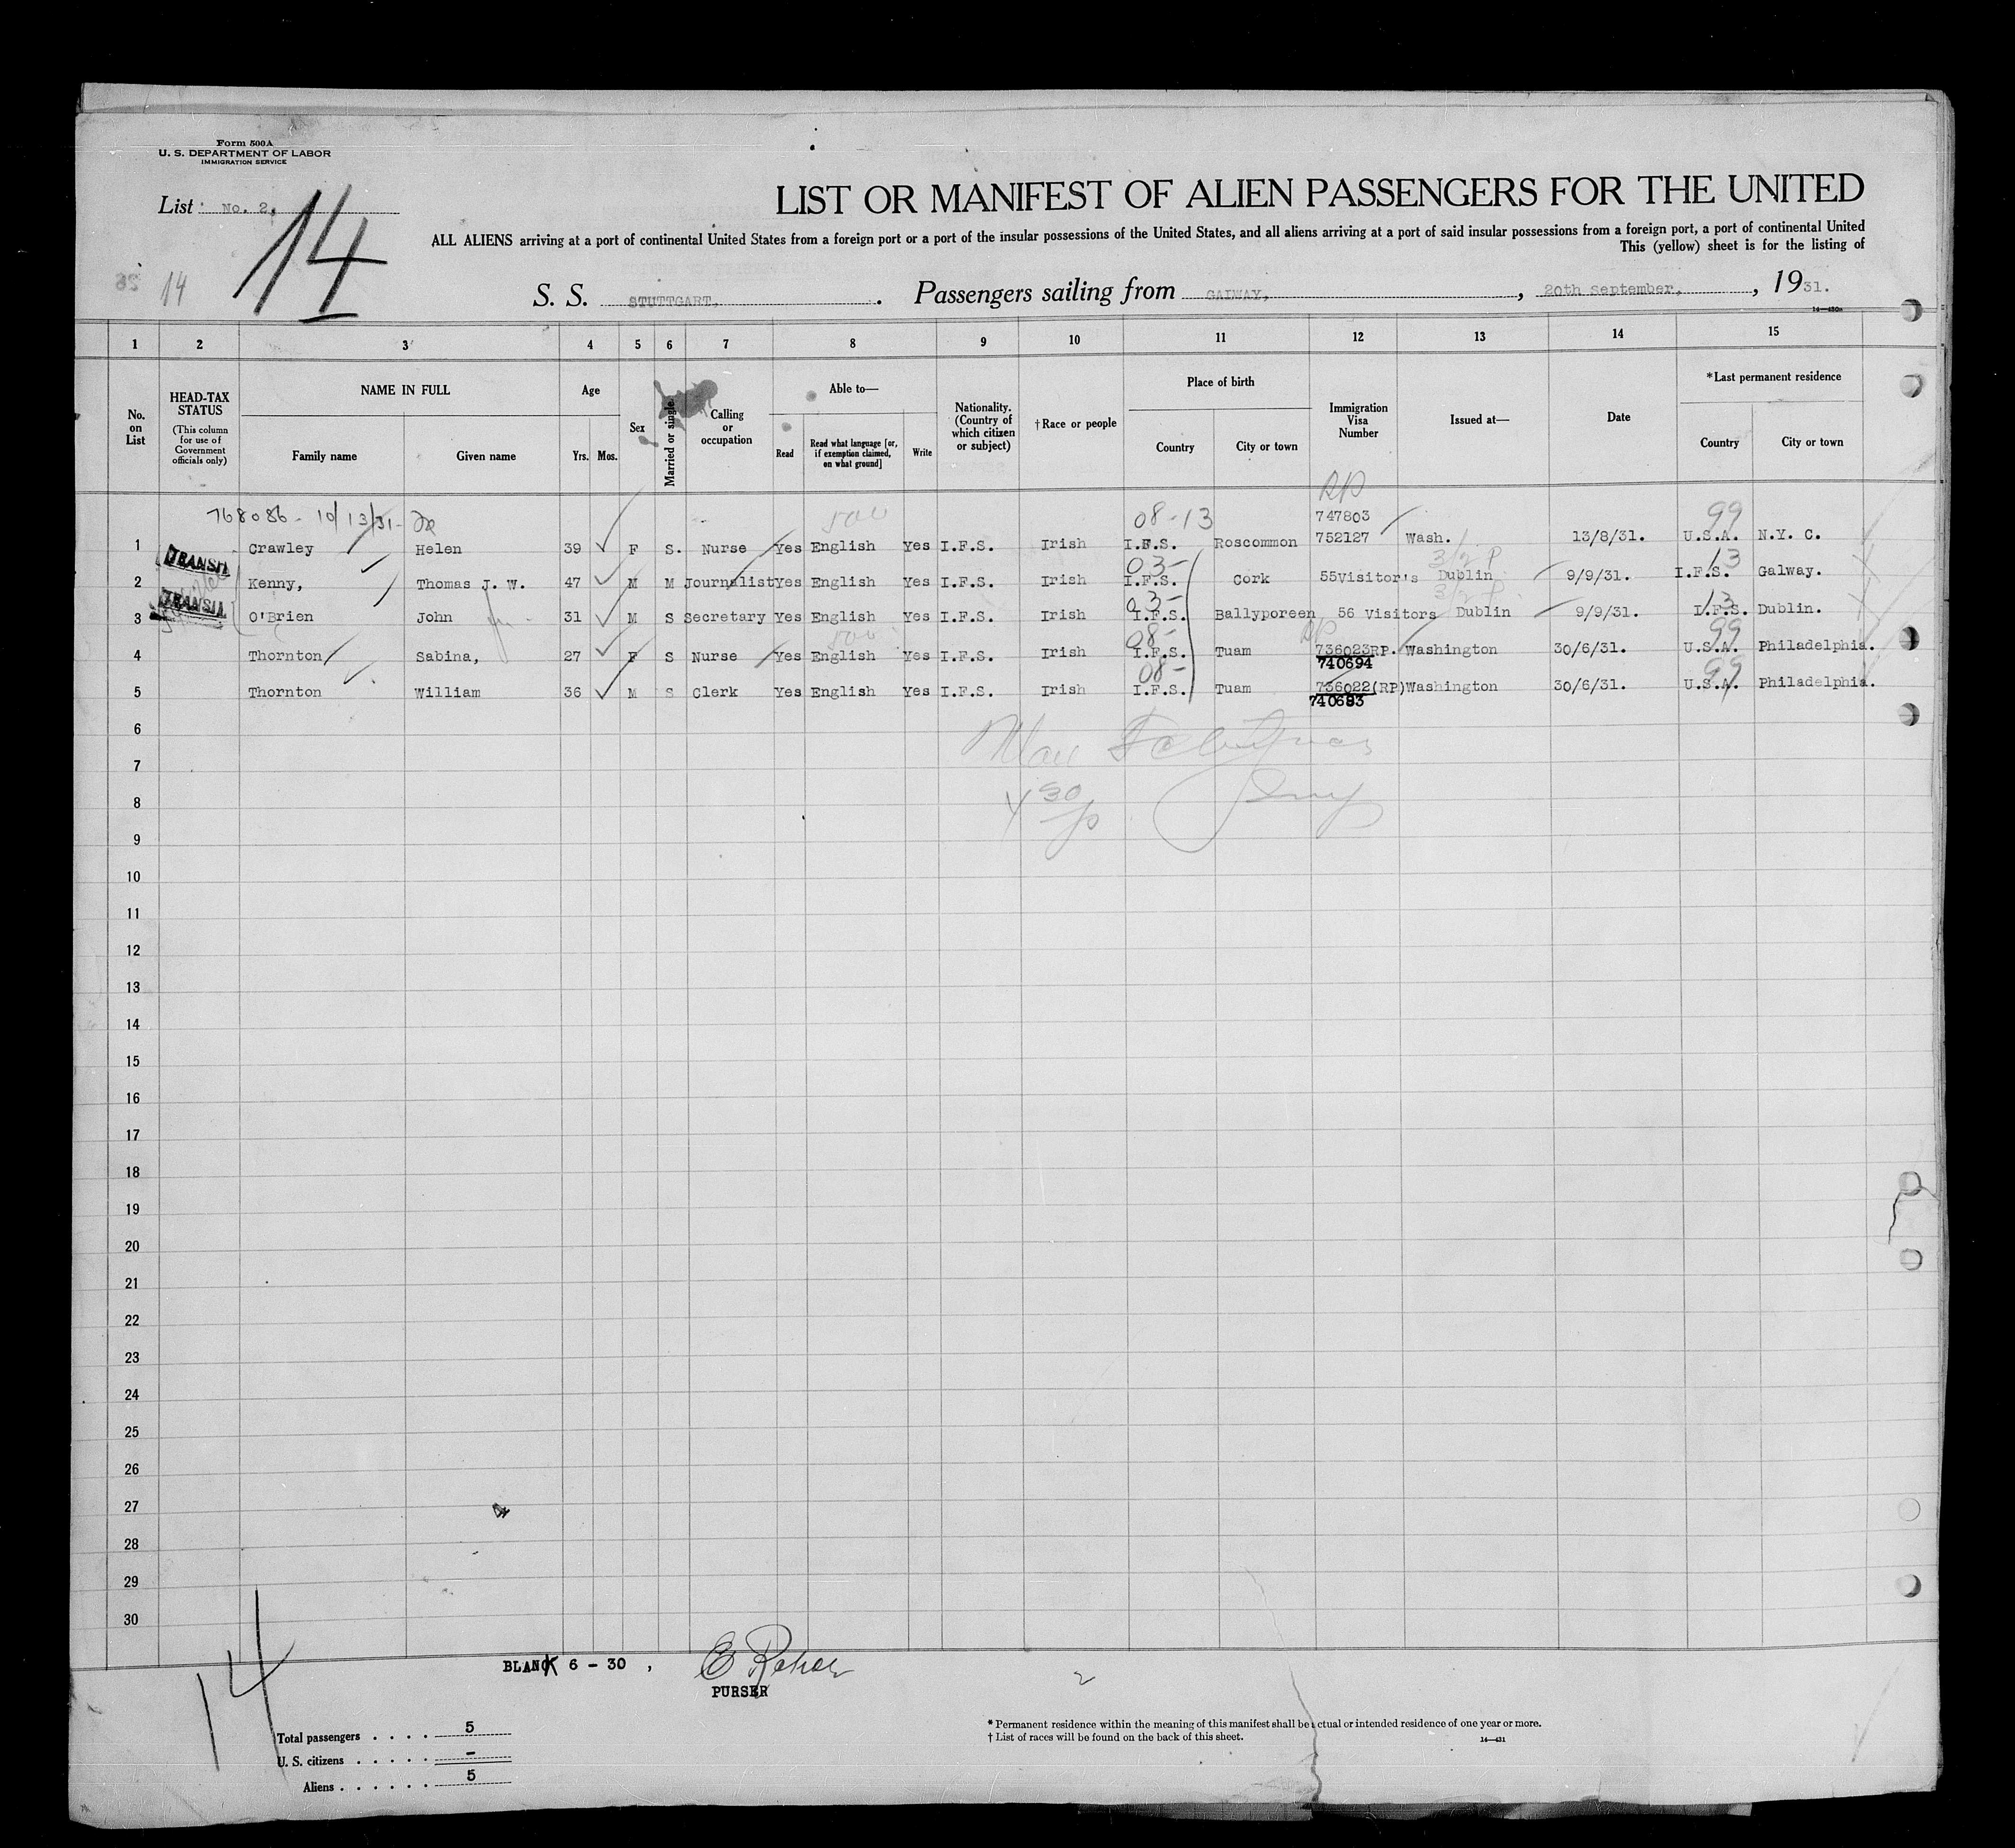 Form 500A
U. S. DEPARTMENT OF LABOR
IMMIGRATION SERVICE
List No. 2,
14
LIST OR MANIFEST OF ALIEN PASSENGERS FOR THE UNITED
ALL ALIENS arriving at a port of continental United States from a foreign port or a port of the insular possessions of the United States, and all aliens arriving at a port of said insular possessions from a foreign port, a port of continental United
This (yellow) sheet is for the listing of
35 14
S. S. STUTTGART, . Passengers sailing from GALWAY, , 20th September, , 1931.
14—430a
1 2 3 4 5 6 7 8 9 10 11 12 13 14 15
No. on List
HEAD-TAX STATUS (This column for use of Government officials only)
NAME IN FULL
Family name Given name
Age
Yrs. Mos.
Sex
Married or single
Calling or occupation
Able to—
Read Read what language [or, if exemption claimed, on what ground] Write
Nationality. (Country of which citizen or subject)
†Race or people
Place of birth
Country City or town
Immigration Visa Number
Issued at—
Date
*Last permanent residence
Country City or town
RP
768086 - 10/13/31 500 08-13 747803 99
1 TRANSIT Crawley Helen 39 F S. Nurse Yes English Yes I.F.S. Irish I.F.S. Roscommon 752127 Wash. 13/8/31. U.S.A. N.Y. C.
03- 3/2 P 13
2 Kenny, Thomas J. W. 47 M M Journalist Yes English Yes I.F.S. Irish I.F.S. Cork 55Visitor's Dublin 9/9/31. I.F.S. Galway.
TRANSIT 03- 3/2 P 13
3 O'Brien John 31 M S Secretary Yes English Yes I.F.S. Irish I.F.S. Ballyporeen 56 Visitors Dublin 9/9/31. I.F.S. Dublin.
500 08- RP 99
4 Thornton Sabina, 27 F S Nurse Yes English Yes I.F.S. Irish I.F.S. Tuam 736023RP. Washington 30/6/31. U.S.A. Philadelphia.
740694
08- 99
5 Thornton William 36 M S Clerk Yes English Yes I.F.S. Irish I.F.S. Tuam 736022(RP) Washington 30/6/31. U.S.A. Philadelphia.
740693
6
7
8
4 30 p
9
10
11
12
13
14
15
16
17
18
19
20
21
22
23
24
25
26
27
28
29
30
BLANK 6 - 30 ,
PURSER
2
14
Total passengers . . . . 5
U. S. citizens . . . . . -
Aliens . . . . . . 5
* Permanent residence within the meaning of this manifest shall be actual or intended residence of one year or more.
† List of races will be found on the back of this sheet.
14—431